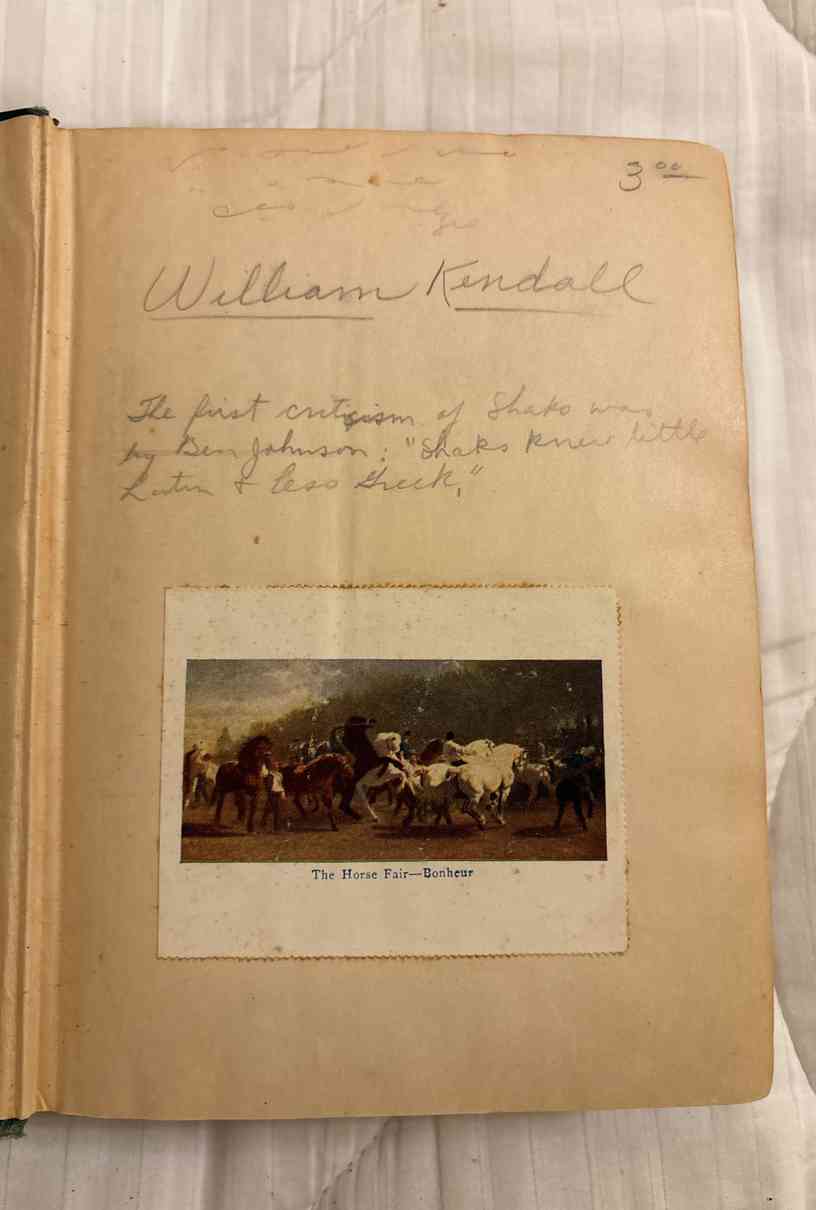 3.00
William Kendall
The first criticism of Shaks was
by Ben Johnson: "Shaks knew little
Latin & less Greek,"
The Horse Fair—Bonheur